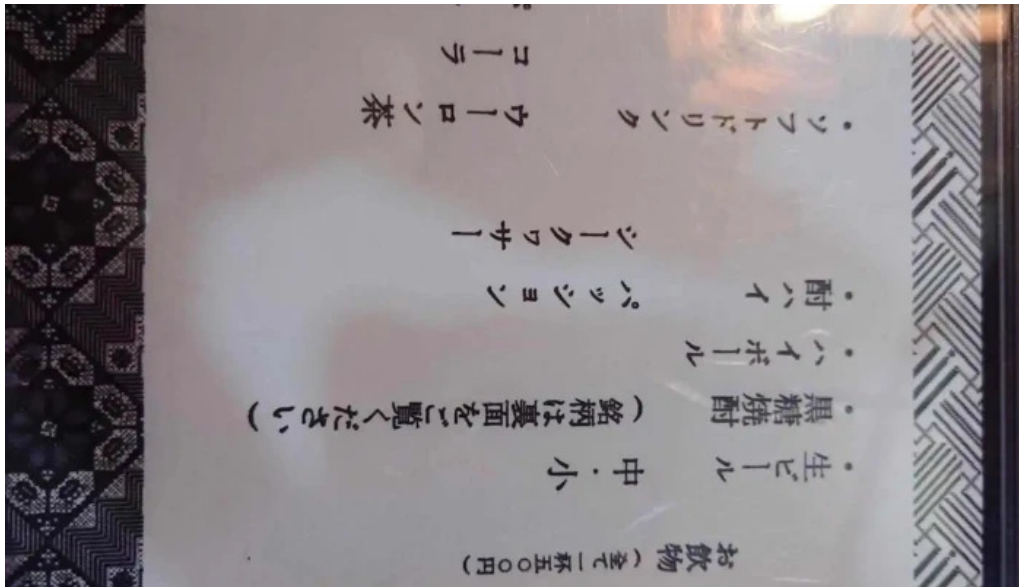 お飲物(全て一杯五〇〇円)
・生ビール 中・小
・黒糖焼酎 (銘柄は裏面をご覧ください)
・ハイボール
・酎ハイ パッション
シークヮサー
・ソフトドリンク ウーロン茶
コーラ